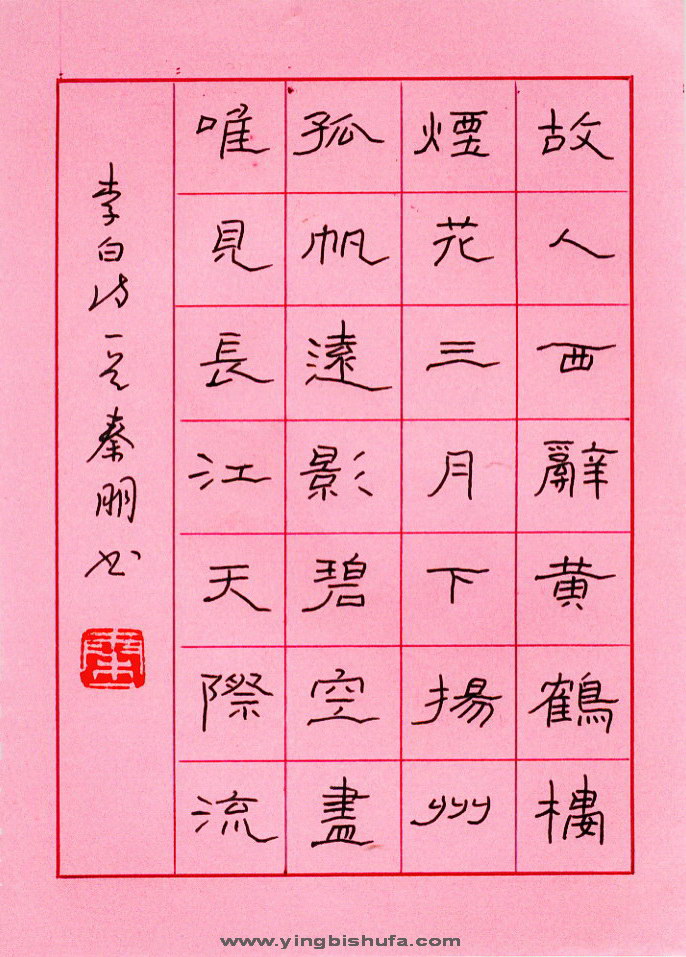 故人西辭黃鶴樓
煙花三月下揚州
孤帆遠影碧空盡
唯見長江天際流
李白詩一首秦朋书
www.yingbishufa.com